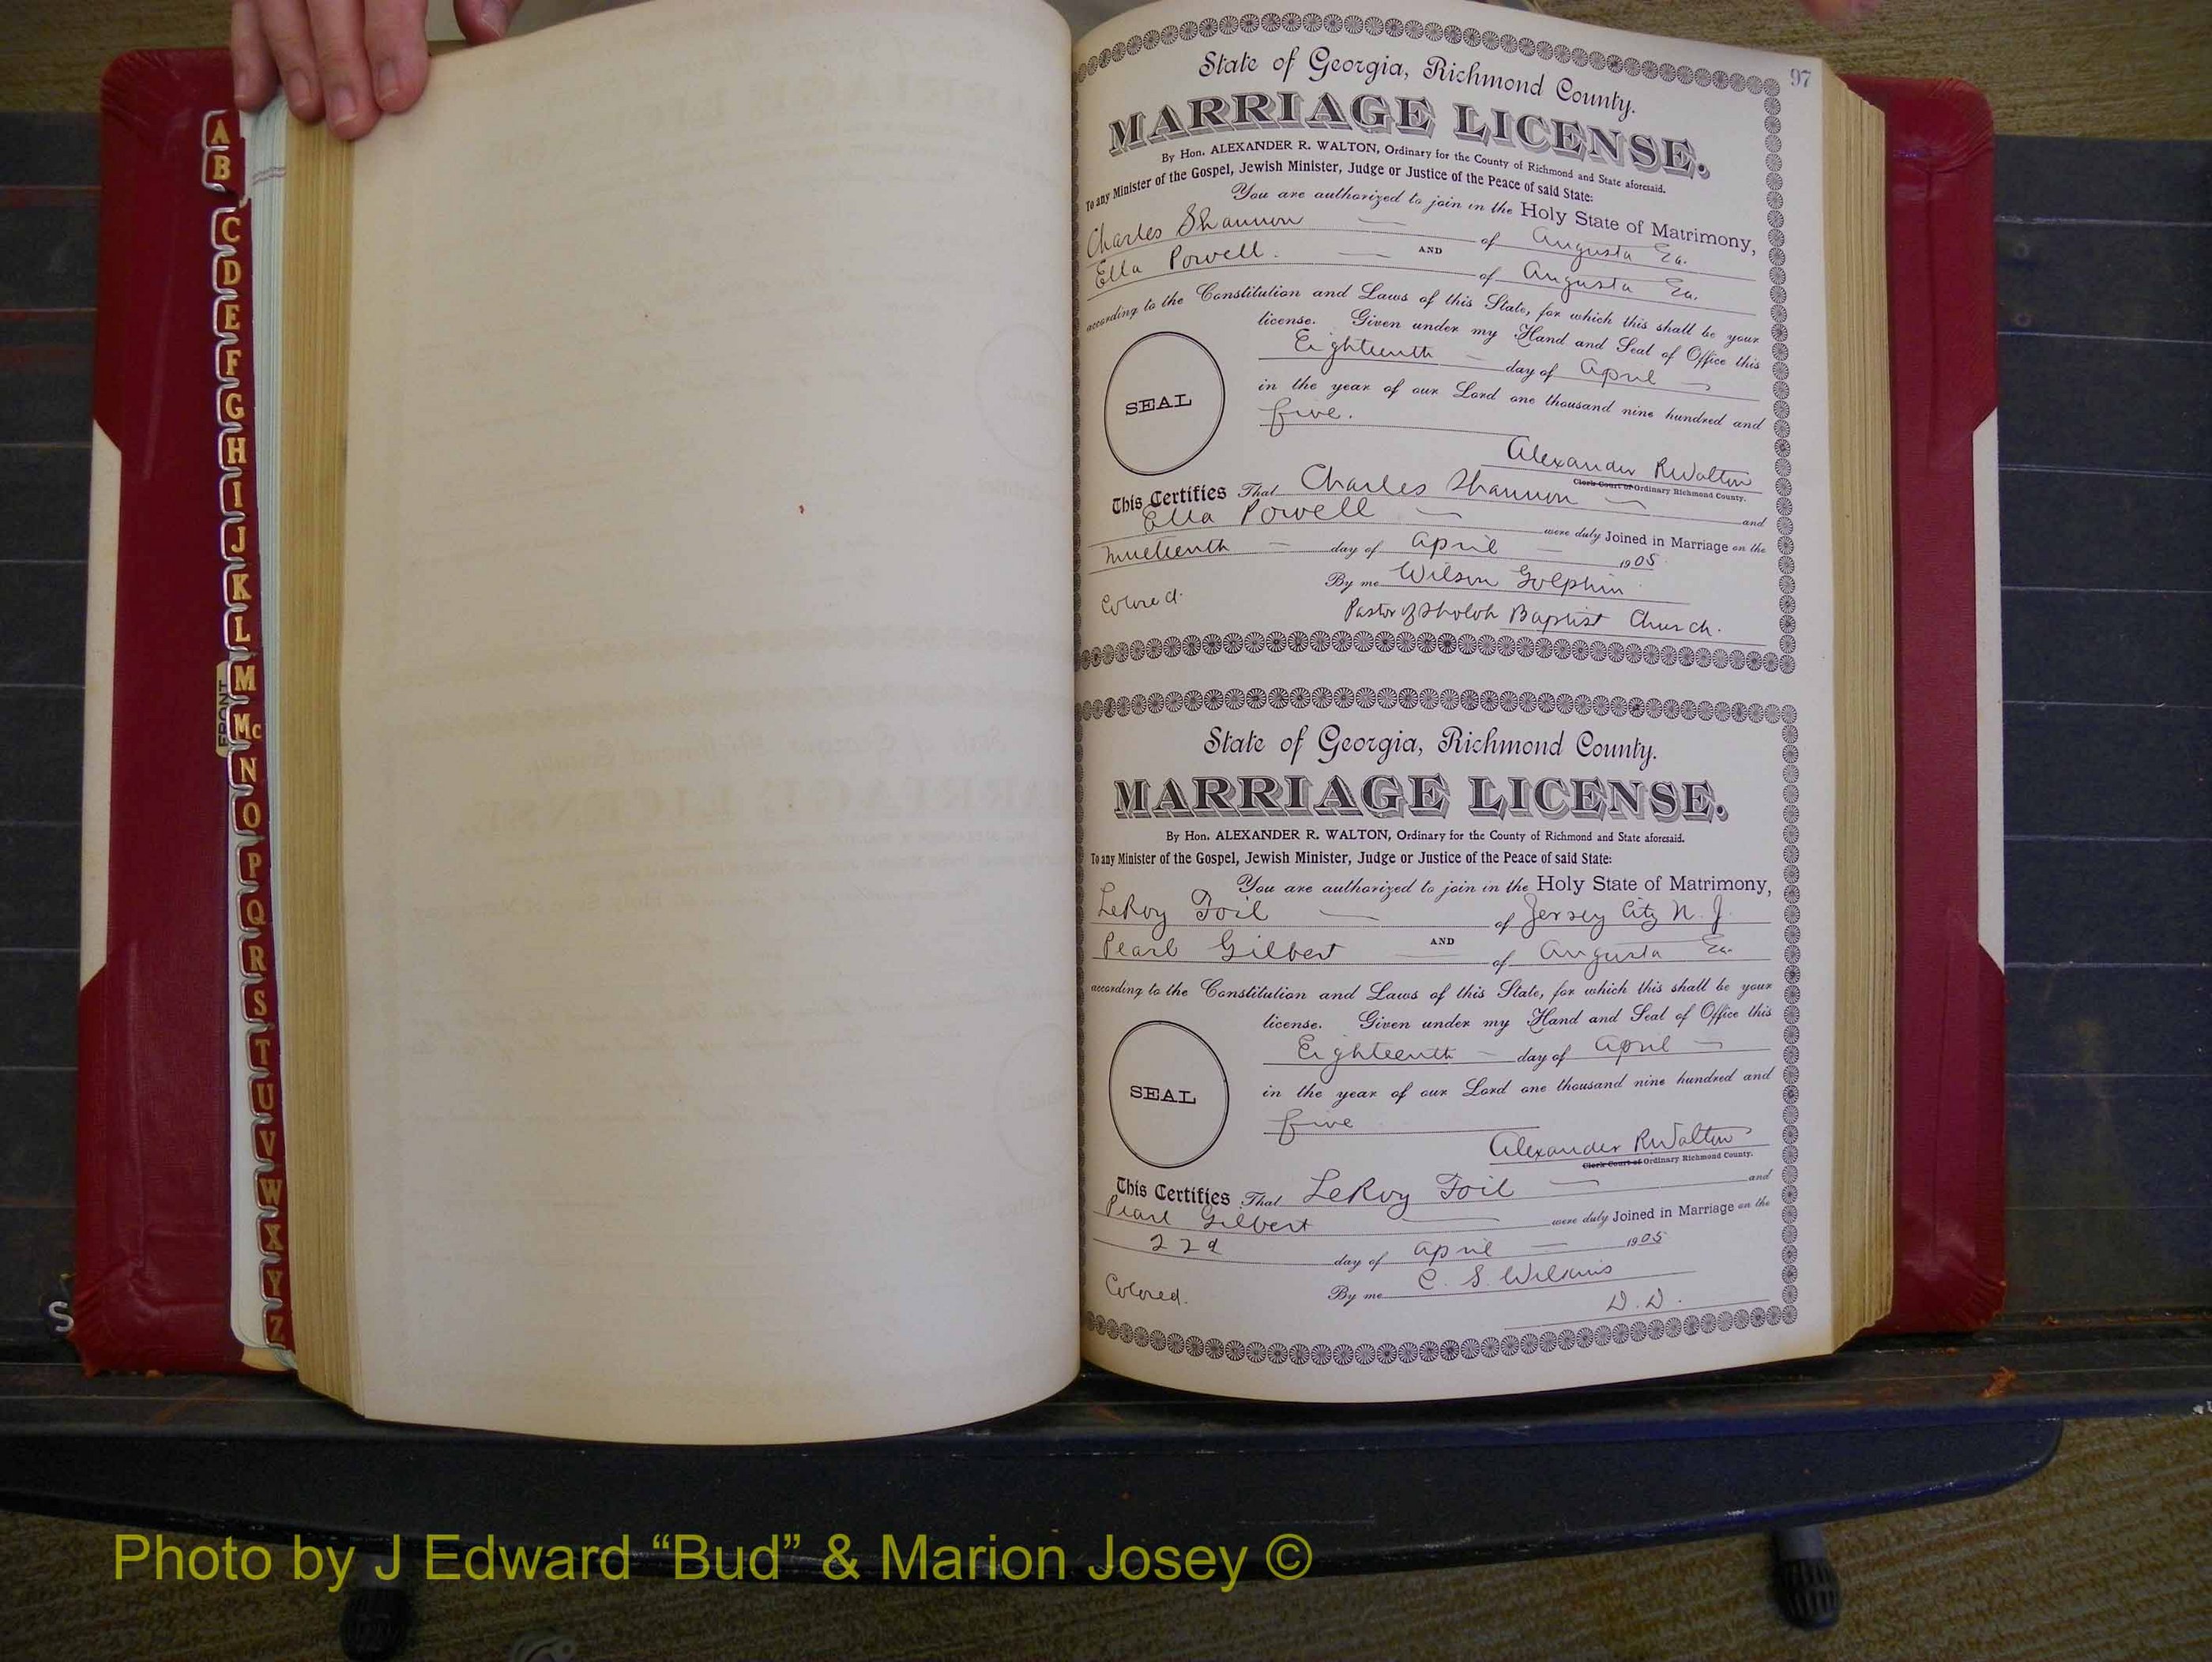 A
B
C
D
E
F
G
H
I
J
K
L
M
Mc
N
O
P
Q
R
S
T
U
V
W
X
Y
Z
FRONT
S
97
State of Georgia, Richmond County.
MARRIAGE LICENSE.
By Hon. ALEXANDER R. WALTON, Ordinary for the County of Richmond and State aforesaid.
To any Minister of the Gospel, Jewish Minister, Judge or Justice of the Peace of said State:
You are authorized to join in the Holy State of Matrimony,
Charles Shannon — of Augusta Ga.
AND
Ella Powell. — of Augusta Ga.
according to the Constitution and Laws of this State, for which this shall be your
license. Given under my Hand and Seal of Office this
Eighteenth — day of April —
in the year of our Lord one thousand nine hundred and
five.
SEAL
Alexander R Walton
Clerk Court of Ordinary Richmond County.
This Certifies That Charles Shannon — and
Ella Powell — were duly Joined in Marriage on the
nineteenth — day of April — 1905
By me Wilson Golphin
Colored.
Pastor of Baptist Church.
State of Georgia, Richmond County.
MARRIAGE LICENSE.
By Hon. ALEXANDER R. WALTON, Ordinary for the County of Richmond and State aforesaid.
To any Minister of the Gospel, Jewish Minister, Judge or Justice of the Peace of said State:
You are authorized to join in the Holy State of Matrimony,
LeRoy Foil — of Jersey City N. J.
AND
Pearl Gilbert — of Augusta Ga.
according to the Constitution and Laws of this State, for which this shall be your
license. Given under my Hand and Seal of Office this
Eighteenth — day of April —
in the year of our Lord one thousand nine hundred and
five
SEAL
Alexander R Walton
Clerk Court of Ordinary Richmond County.
This Certifies That LeRoy Foil — and
Pearl Gilbert — were duly Joined in Marriage on the
22d day of April — 1905
By me C. S. Wilkins
Colored.
D. D.
Photo by J Edward “Bud” & Marion Josey ©